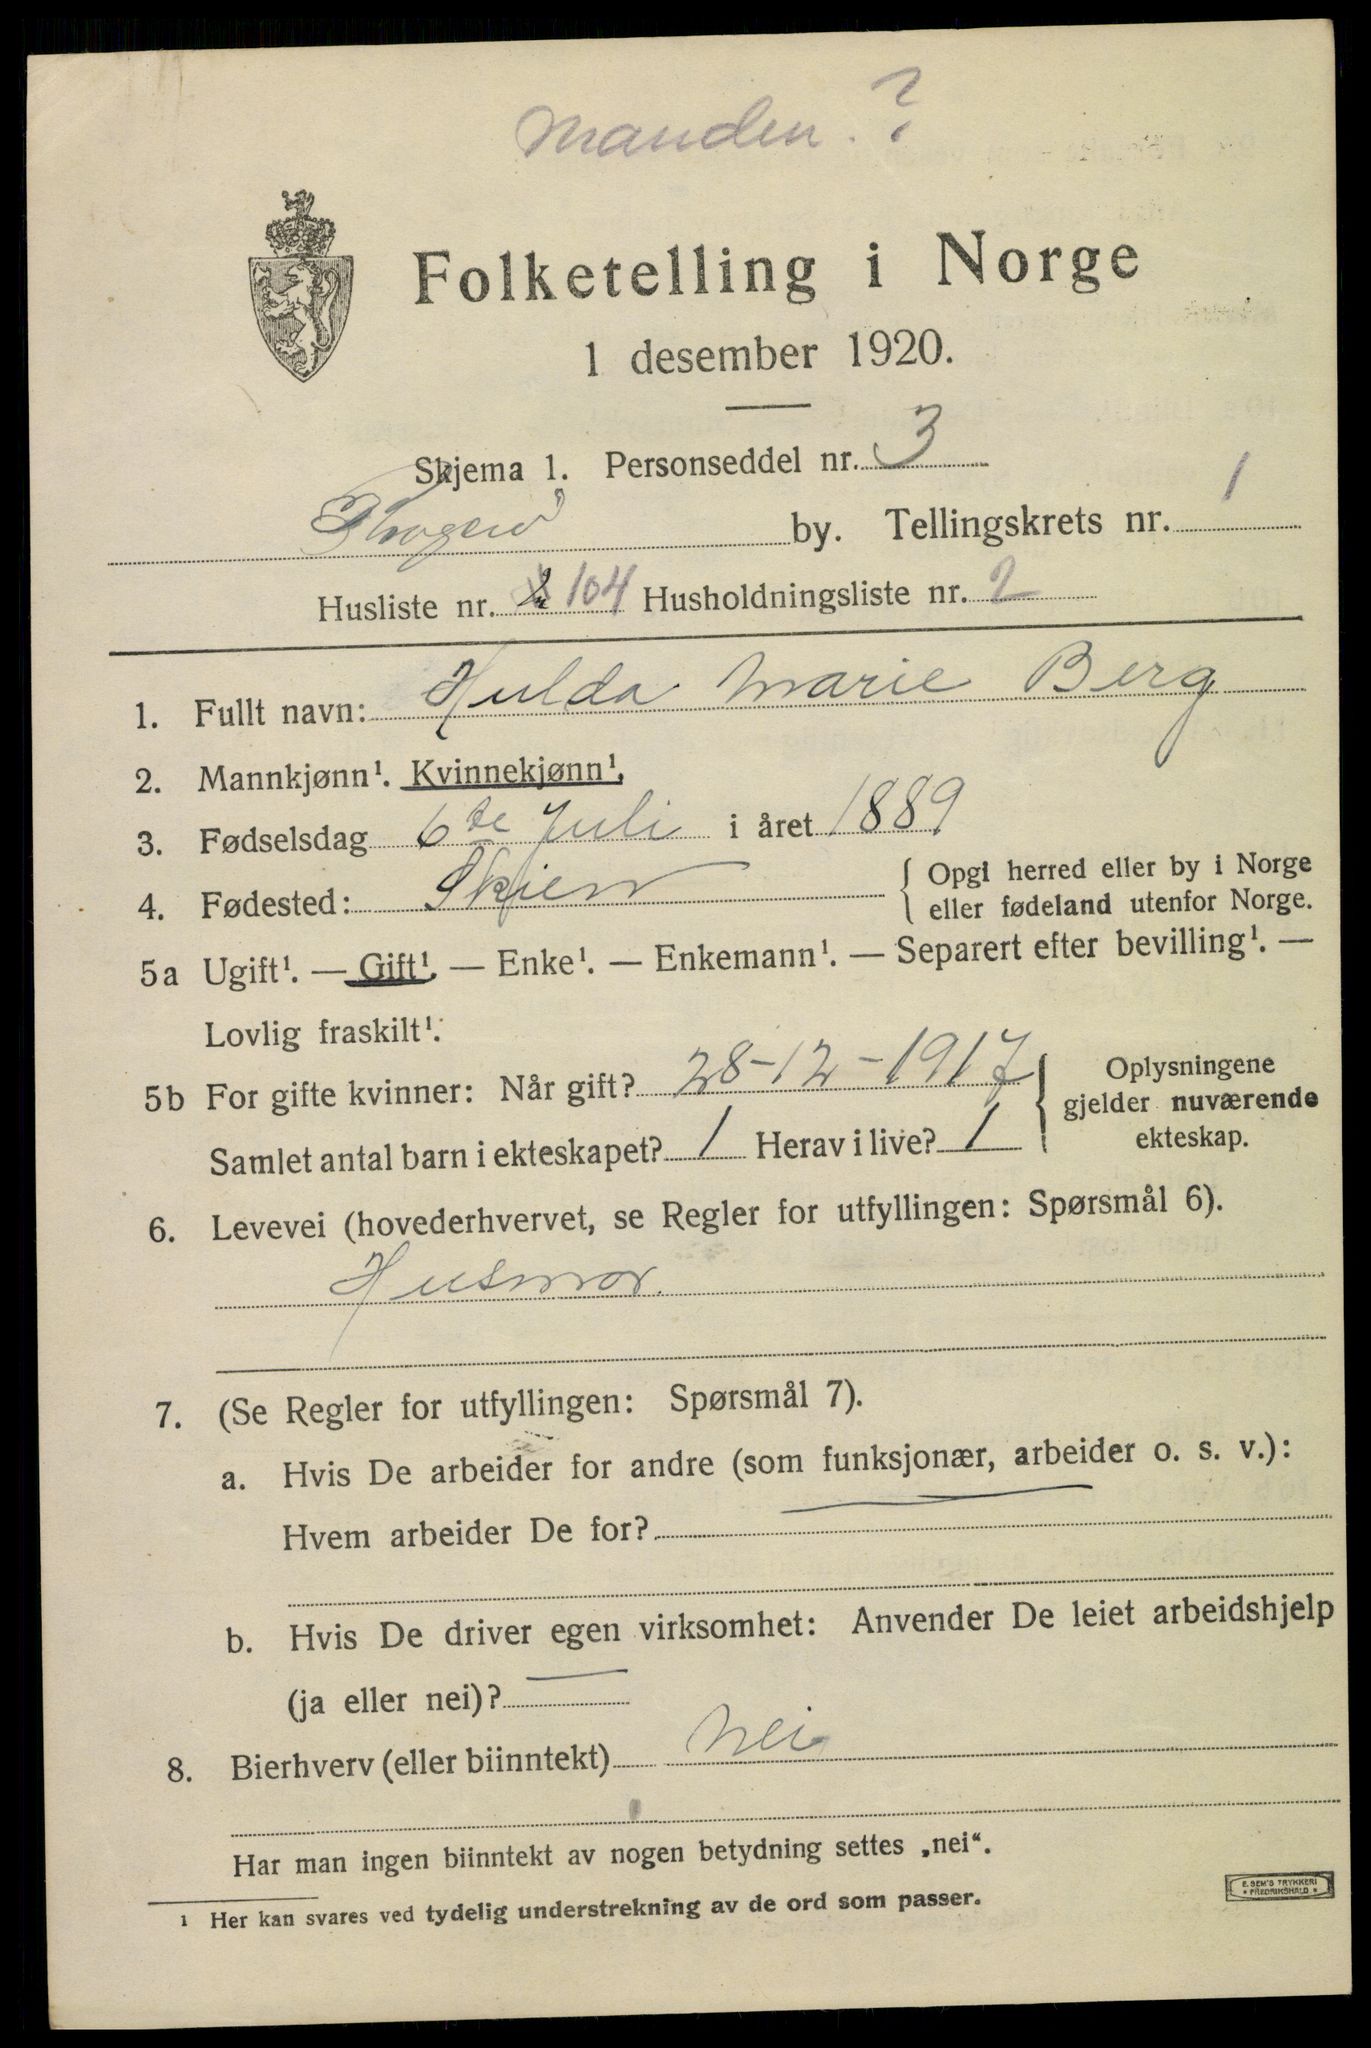 Manden.?
Folketelling i Norge
1 desember 1920.
Skjema 1. Personseddel nr. 3
by. Tellingskrets nr. 1
Husliste nr. 104 Husholdningsliste nr. 2
1. Fullt navn: Hulda Marie Berg
2. Mannkjønn¹. Kvinnekjønn¹.
3. Fødselsdag 6te Juli i året 1889
4. Fødested: Skien { Opgi herred eller by i Norge
eller fødeland utenfor Norge.
5a Ugift¹. — Gift¹. — Enke¹. — Enkemann¹. — Separert efter bevilling¹. —
Lovlig fraskilt¹.
5b For gifte kvinner: Når gift? 28-12-1917
Samlet antal barn i ekteskapet? 1 Herav i live? 1
Oplysningene
gjelder nuværende
ekteskap.
6. Levevei (hovederhvervet, se Regler for utfyllingen: Spørsmål 6).
Husmor.
7. (Se Regler for utfyllingen: Spørsmål 7).
a. Hvis De arbeider for andre (som funksjonær, arbeider o. s. v.):
Hvem arbeider De for?
b. Hvis De driver egen virksomhet: Anvender De leiet arbeidshjelp
(ja eller nei)?
8. Bierhverv (eller biinntekt) Nei
Har man ingen biinntekt av nogen betydning settes „nei“.
¹ Her kan svares ved tydelig understrekning av de ord som passer.
E. SEM'S TRYKKERI
FREDRIKSHALD